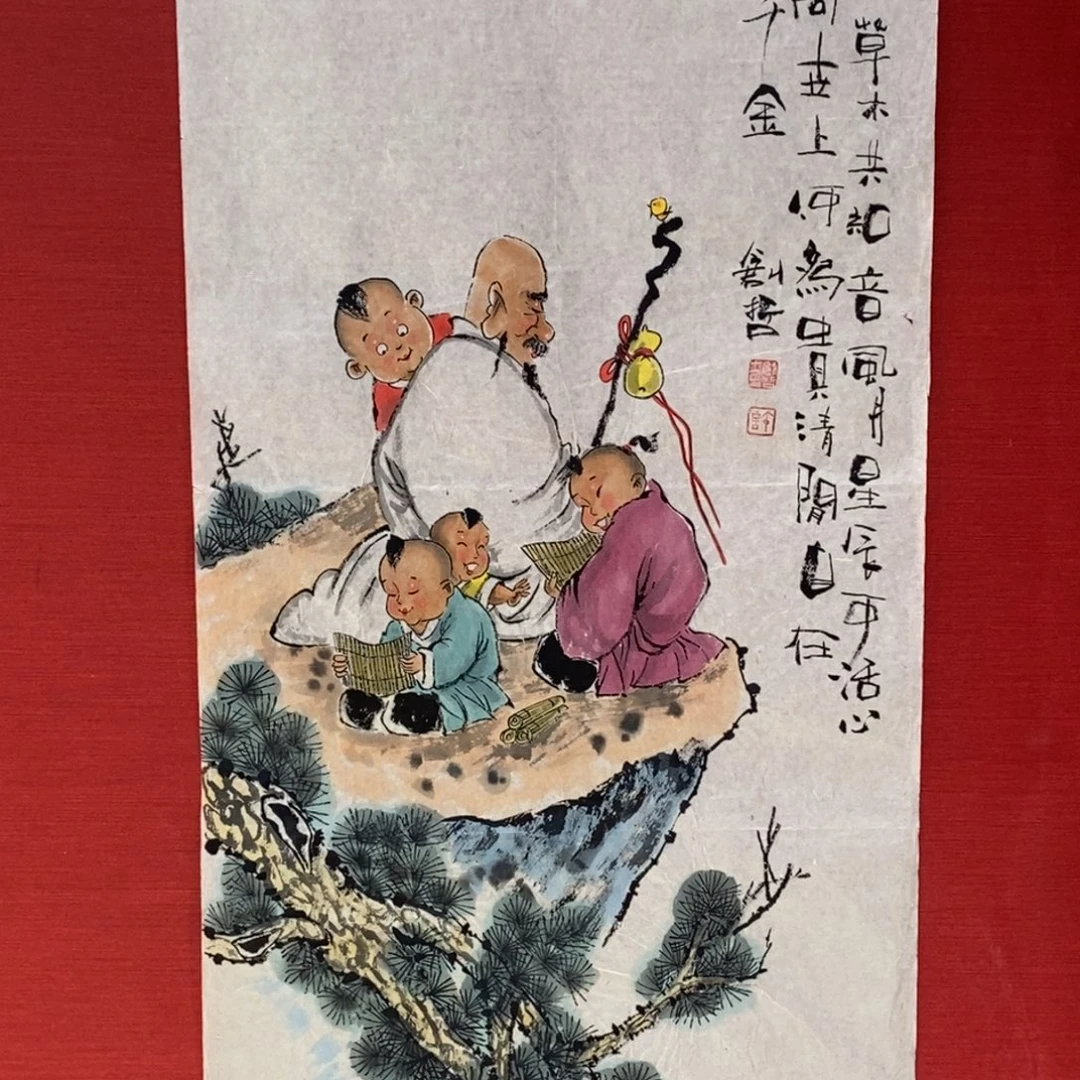 草木共知音風月星辰可活心
問世上何為貴清閒自在
千金
哲